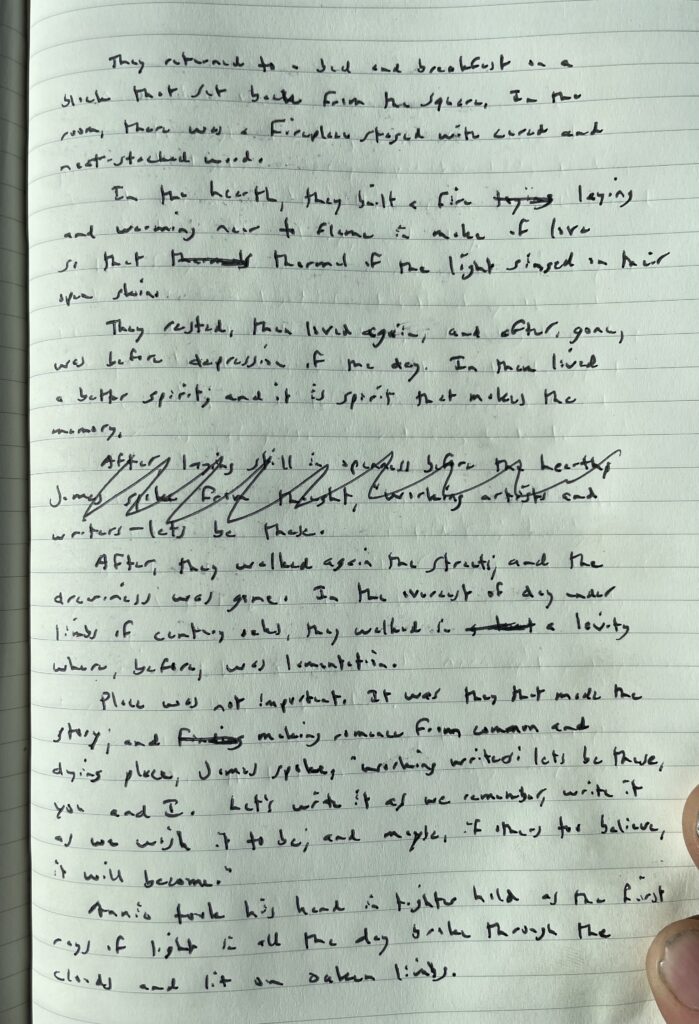 They returned to a bed and breakfast on a
block that set back from the square. In the
room, there was a fireplace staged with cured and
neat-stacked wood.
In the hearth, they built a fire trying laying
and warming near to flame in make of love
so that thermals thermal of the light singed on their
open skins.
They rested, then loved again, and after, gone,
was before depression of the day. In them lived
a better spirit; and it is spirit that makes the
memory.
After laying still in openness before the hearth,
James spoke from thought, "Working artists and
writers—lets be these.
After, they walked again the streets; and the
dreariness was gone. In the overcast of day under
limbs of century oaks, they walked in a levity
where, before, was lamentation.
Place was not important. It was they that made the
story; and finding making romance from common and
dying place, James spoke, "working writers: lets be these,
you and I. Let's write it as we remember, write it
as we wish it to be; and maybe, if others too believe,
it will become."
Annie took his hand in tighter hold as the first
rays of light in all the day broke through the
clouds and lit on oaken limbs.